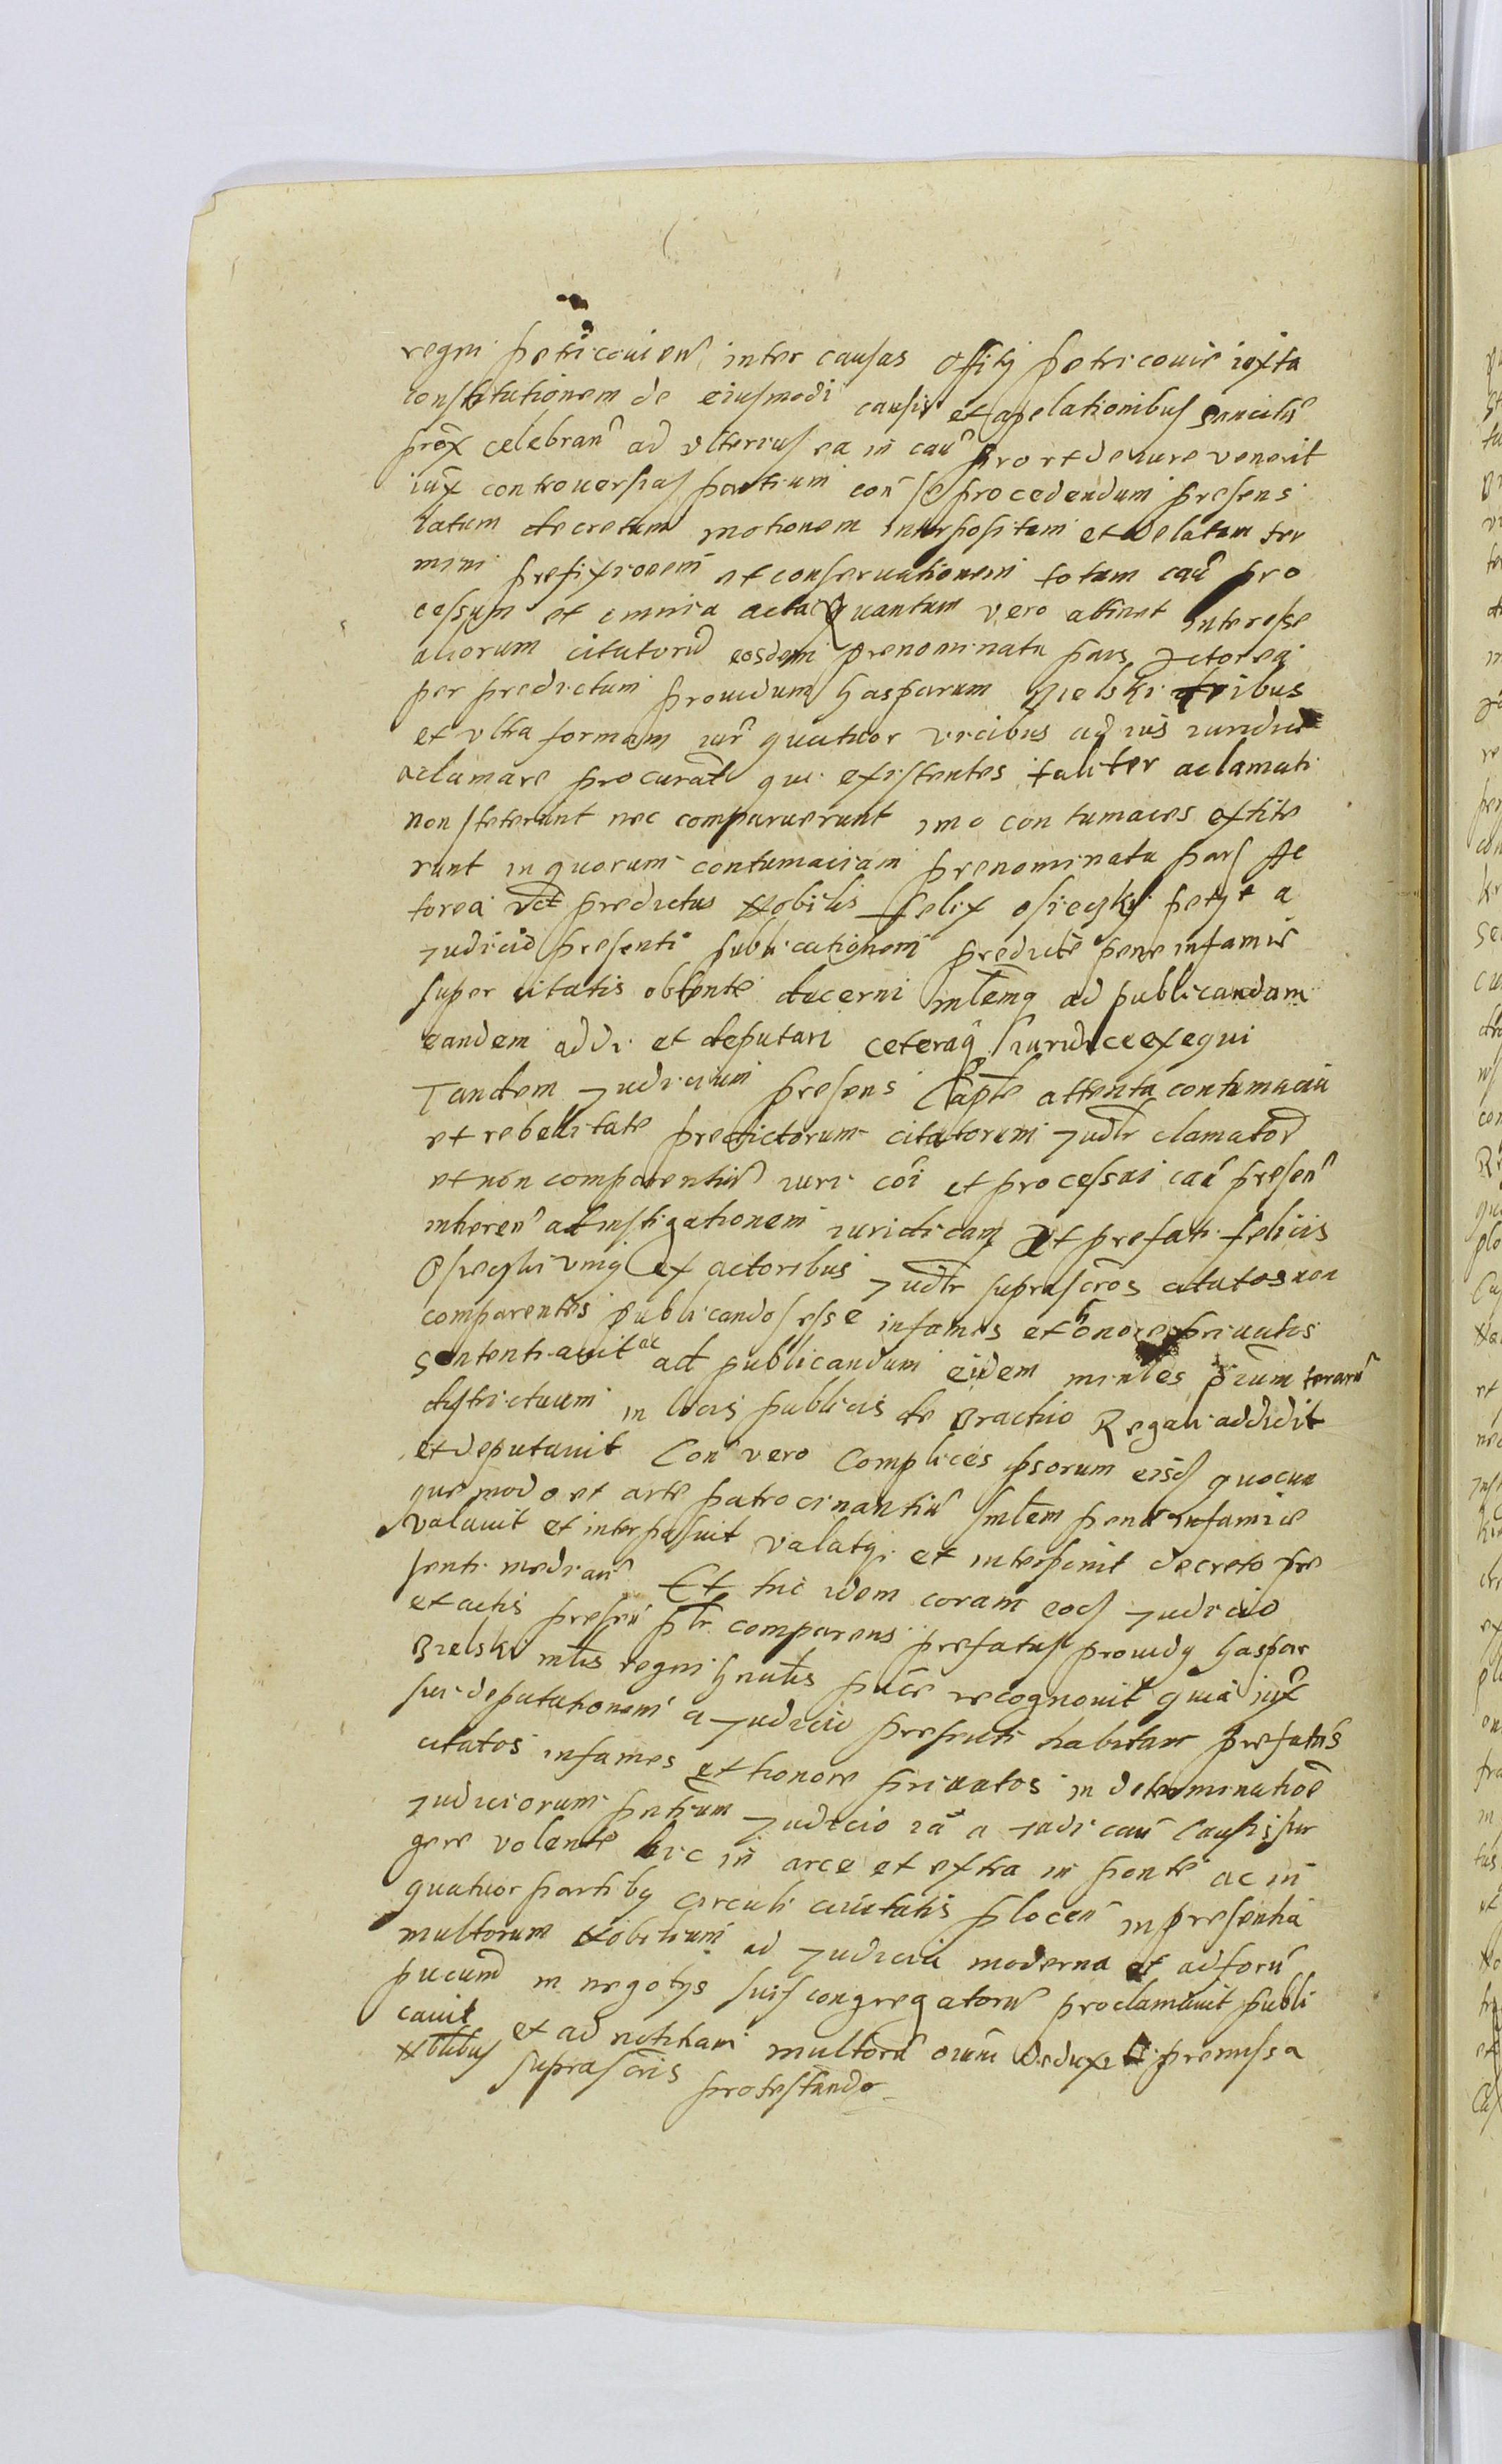 regni petricovien inter causas Offitÿ petricouie iuxta
constitutionem de eiusmodi causis et apelationibus sancitis
prox celebran ad vlterius ea in cau prout de iure venerit
iux controuersias partium con se procedendum presens
latum decretum motionem interpositam et delatam ter
mini prefixionem et conseruationem totum cau pro
cessum et omnia acta Quantum vero attinet Interesse
aliorum citatoru eosdem prenominata pars Actorea
per predictum prouidum Gasparum Bielski tribus
et vltra formam iur quatuor vicibus ad ius iuridice
aclamare procurauit qui existentes taliter aclamati
non steterunt nec comparuerunt imo contumaces extite
runt in quorum contumaciam prenominata pars Ac
torea vt predictus Nobilis Felix osieczky petyt a
Judicio presenti publicationem predicte pene infamie
super citatis obtente decerni mlemq ad publicandam
eandem addi et deputari ceteraq iuridice exequi
Tandem Judicium presens Capte attenta contumacia
et rebellitate predictorum citatorum Judlr clamator
et non comparentiu iuri coi et processui cau presen
inheren ad instigationem iuridicam prefati felicis
Osieczki vniq ex actoribus Judlr suprascros citatos non
comparentes publicandos esse infames et honore priuatos
sententiauit ac ad publicandum eidem minles terraru
districtuum in locis publicis de Brachio Regali addidit
et deputauit Con vero Complices ipsorum eisd quocun
que modo et arte patrocinantiu smlem pena infamie
valauit et interposuit valatqi et interponit decreto pre
senti median Et hic idem coram eod Judicio
et actis presen plr comparens prefatus prouidq Gaspar
Bielski mlis regni gnalis recognouit quia iux
sui deputationem a Judicio presenti habitam prefatos
citatos infames et honore priuatos in determinatioe
Judiciorum pntium Judicio ia a Judican causis sur
gere volente hic in arce et extra in ponte ac in
quatuor partibq circuli ciuitatis plocen in presentia
multorum Nobilium ad Judicia moderna et ad foru
in negotys suis congregatoru proclamauit publi
cauit et ad notitiam multoru deduxit premissa
Nblibus suprascris protestando